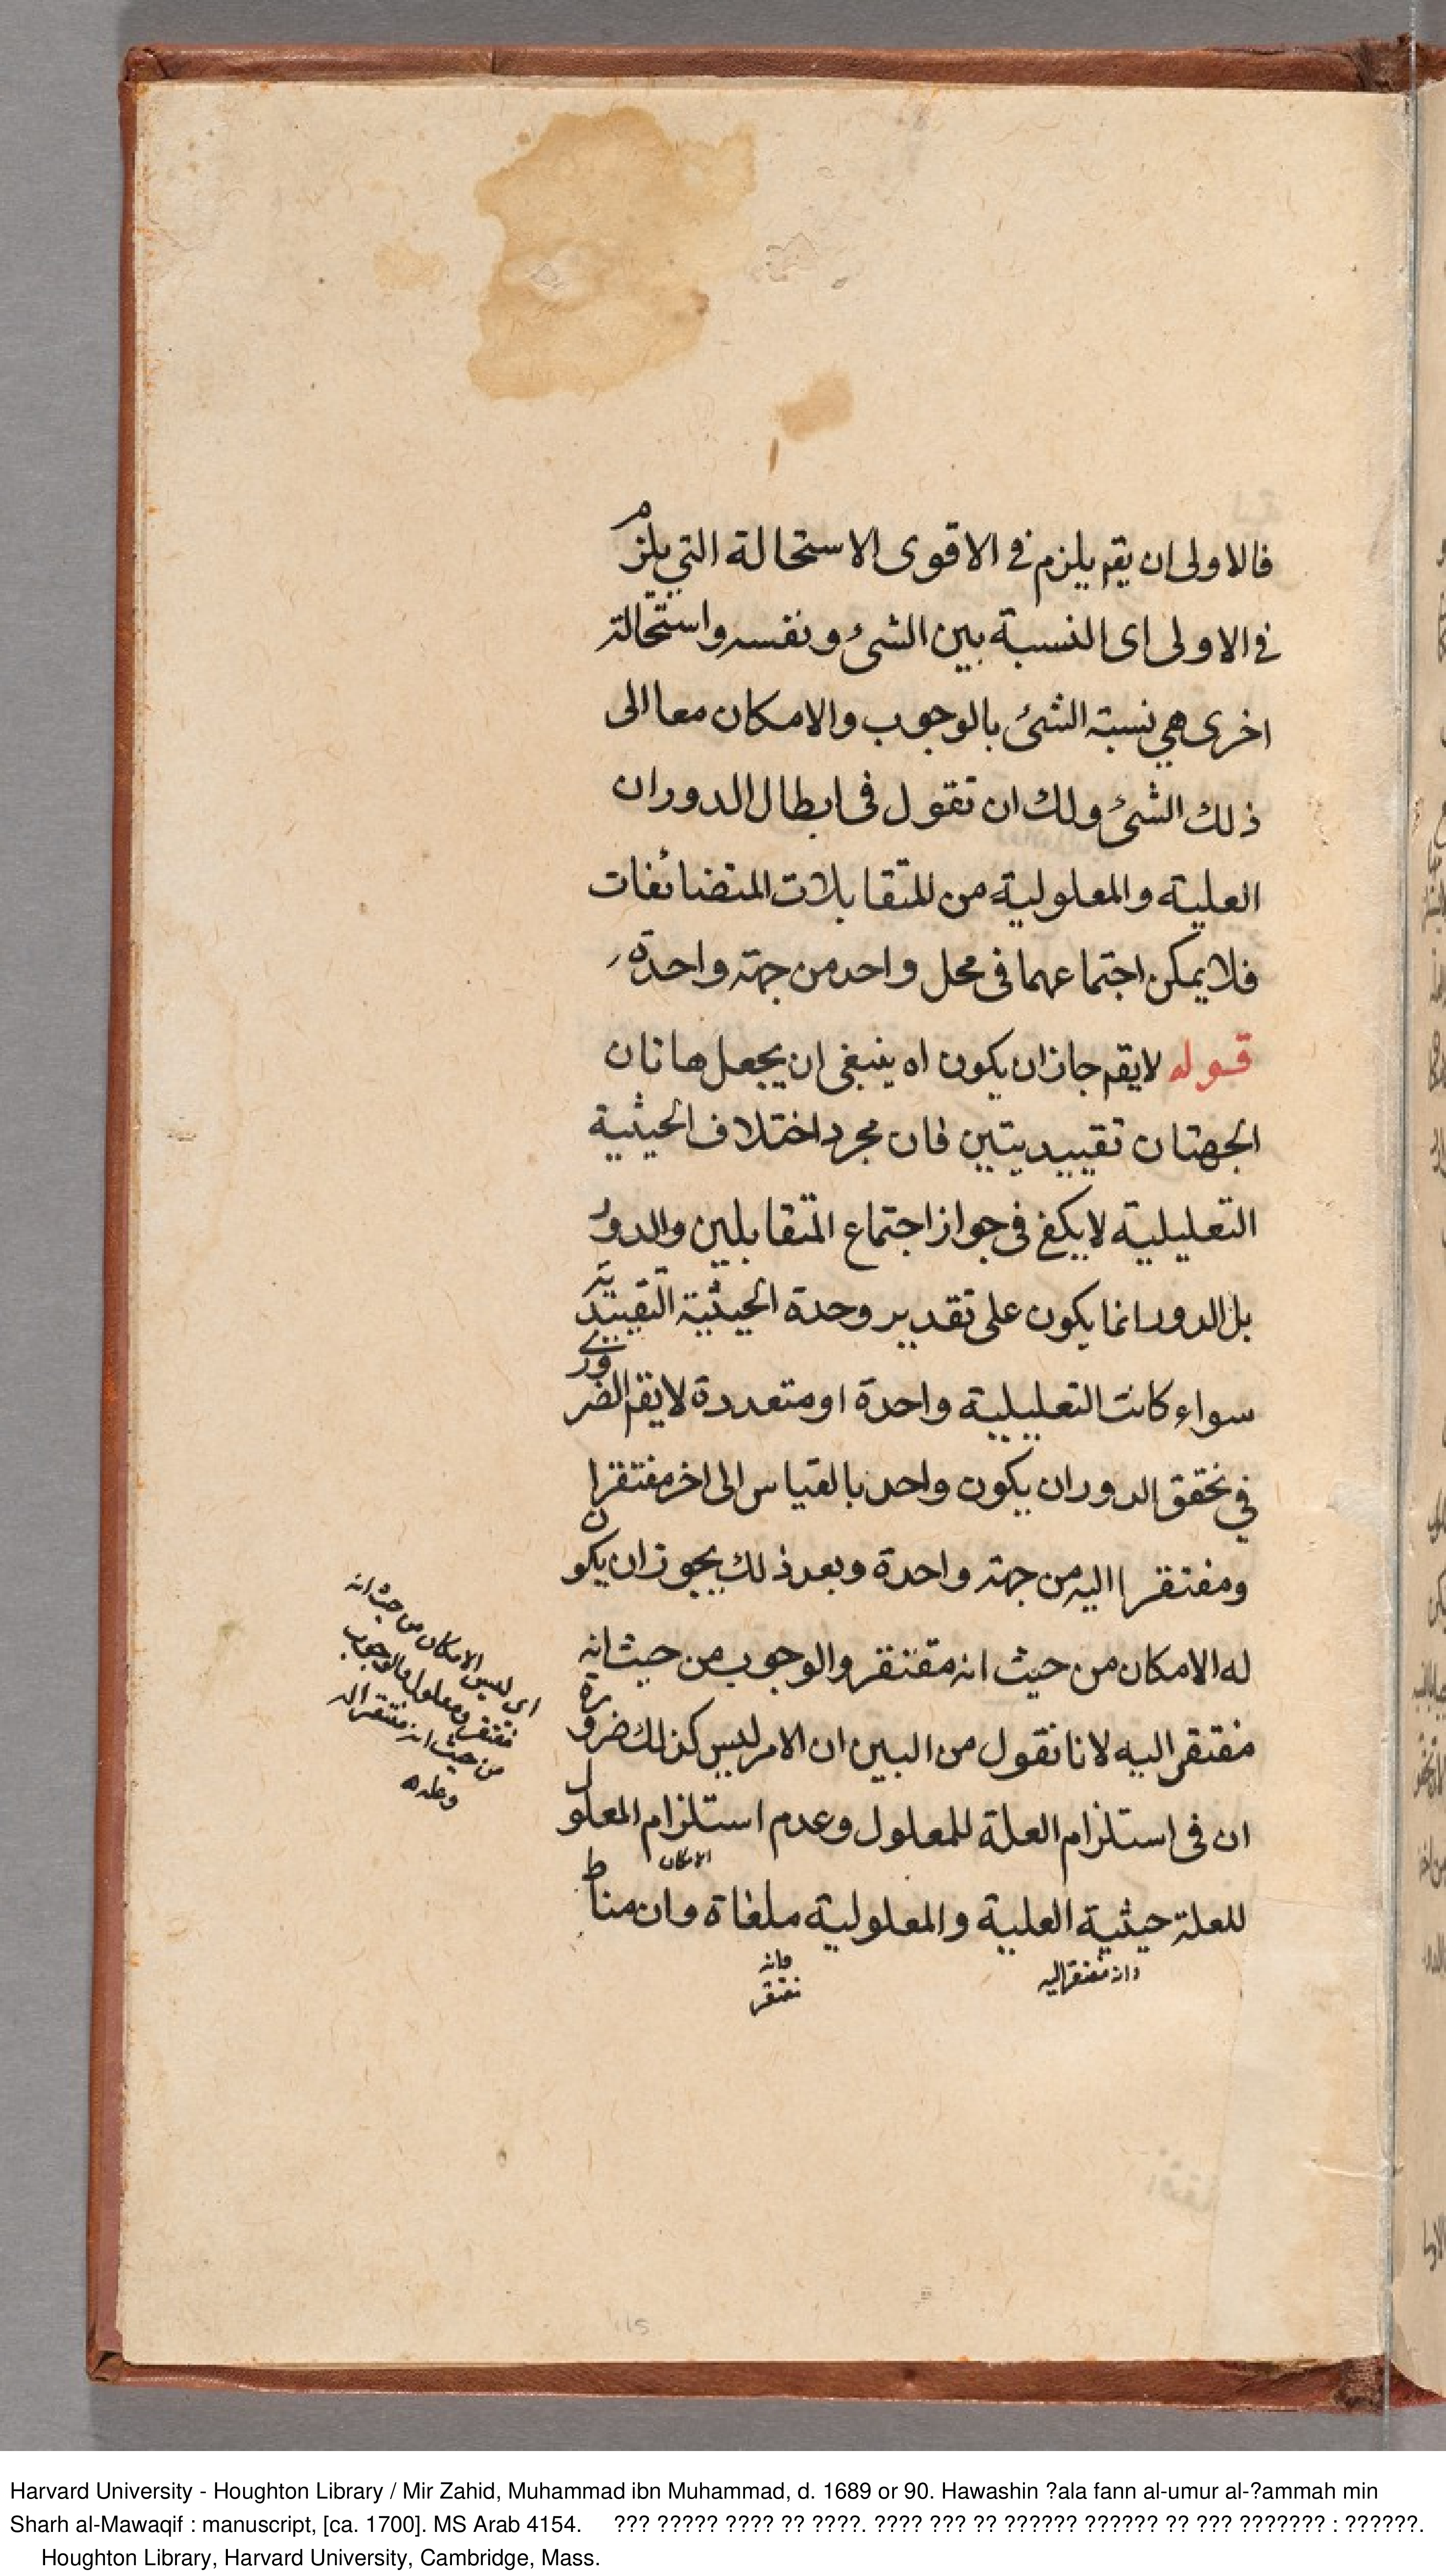 فالاولى ان يقم يلزم فى الاقوى الاستحالة التي يلزم
فى الاولى اى النسبة بين الشئ ونفسه واستحالة
اخرى هي نسبة الشئ بالوجوب والامكان معا الى
ذلك الشئ ولك ان تقول فى ابطال الدور ان
العلية والمعلولية من المتقابلات المتضائفات
فلا يمكن اجتماعهما فى محل واحد من جهة واحدة
قوله لايقم جاز ان يكون اه ينبغى ان يجعل هاتان
الجهتان تقييديتين فان مجرد اختلاف الحيثية
التعليلية لا يكفي فى جواز اجتماع المتقابلين والدور
بل الدور انما يكون على تقدير وحدة الحيثية التقييدية
سواء كانت التعليلية واحدة او متعددة لايقم الضرورى
في تحقق الدور ان يكون واحد بالقياس الى اخر مفتقرا
ومفتقرا اليه من جهة واحدة وبعد ذلك يجوز ان يكون
له الامكان من حيث انه مفتقر والوجوب من حيث انه
مفتقر اليه لانا نقول من البين ان الامر ليس كذلك ضرورة
ان فى استلزام العلة للمعلول وعدم استلزام المعلول
الامكان
للعلة حيثية العلية والمعلولية ملغاة وان مناط
وانه مفتقر اليه
وانه
مفتقر
اى ليس الامكان من حيث انه
مفتقر ومعلول والوجوب
من حيث انه مفتقر اليه
وعلة
Harvard University - Houghton Library / Mir Zahid, Muhammad ibn Muhammad, d. 1689 or 90. Hawashin ?ala fann al-umur al-?ammah min
Sharh al-Mawaqif : manuscript, [ca. 1700]. MS Arab 4154. ??? ????? ???? ?? ????. ???? ??? ?? ?????? ?????? ?? ??? ??????? : ??????.
Houghton Library, Harvard University, Cambridge, Mass.